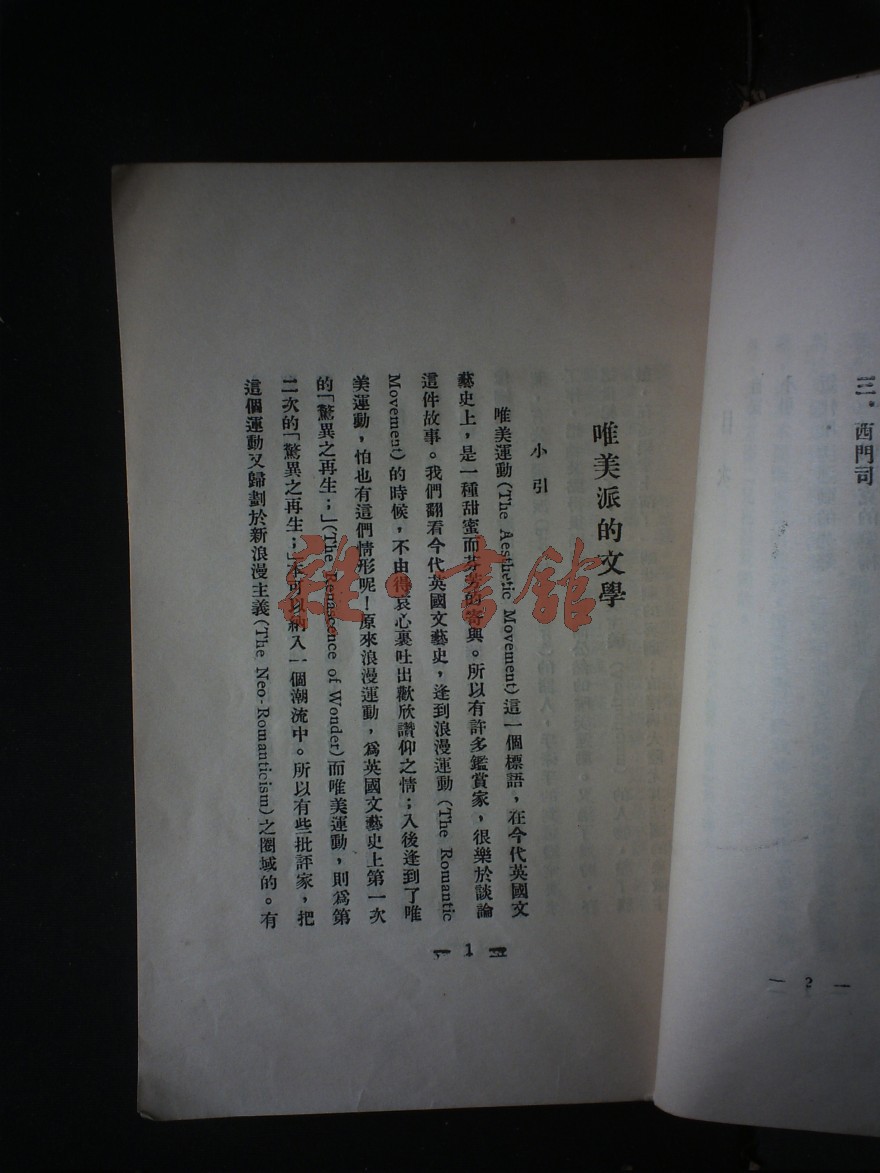 三．西門司
— 2 —
唯美派的文學
小引
唯美運動(The Aesthetic Movement)這一個標語，在今代英國文
藝史上，是一種甜蜜而芬芳的寄興。所以有許多鑑賞家，很樂於談論
這件故事。我們翻看今代英國文藝史，逢到浪漫運動(The Romantic
Movement)的時候，不由得衷心裏吐出歡欣讚仰之情；入後逢到了唯
美運動，怕也有這們情形呢！原來浪漫運動，爲英國文藝史上第一次
的「驚異之再生；」(The Renascence of Wonder)而唯美運動，則爲第
二次的「驚異之再生；」本可以納入一個潮流中。所以有些批評家，把
這個運動又歸劃於新浪漫主義(The Neo-Romanticism)之圈域的。有
— 1 —
雜·書館